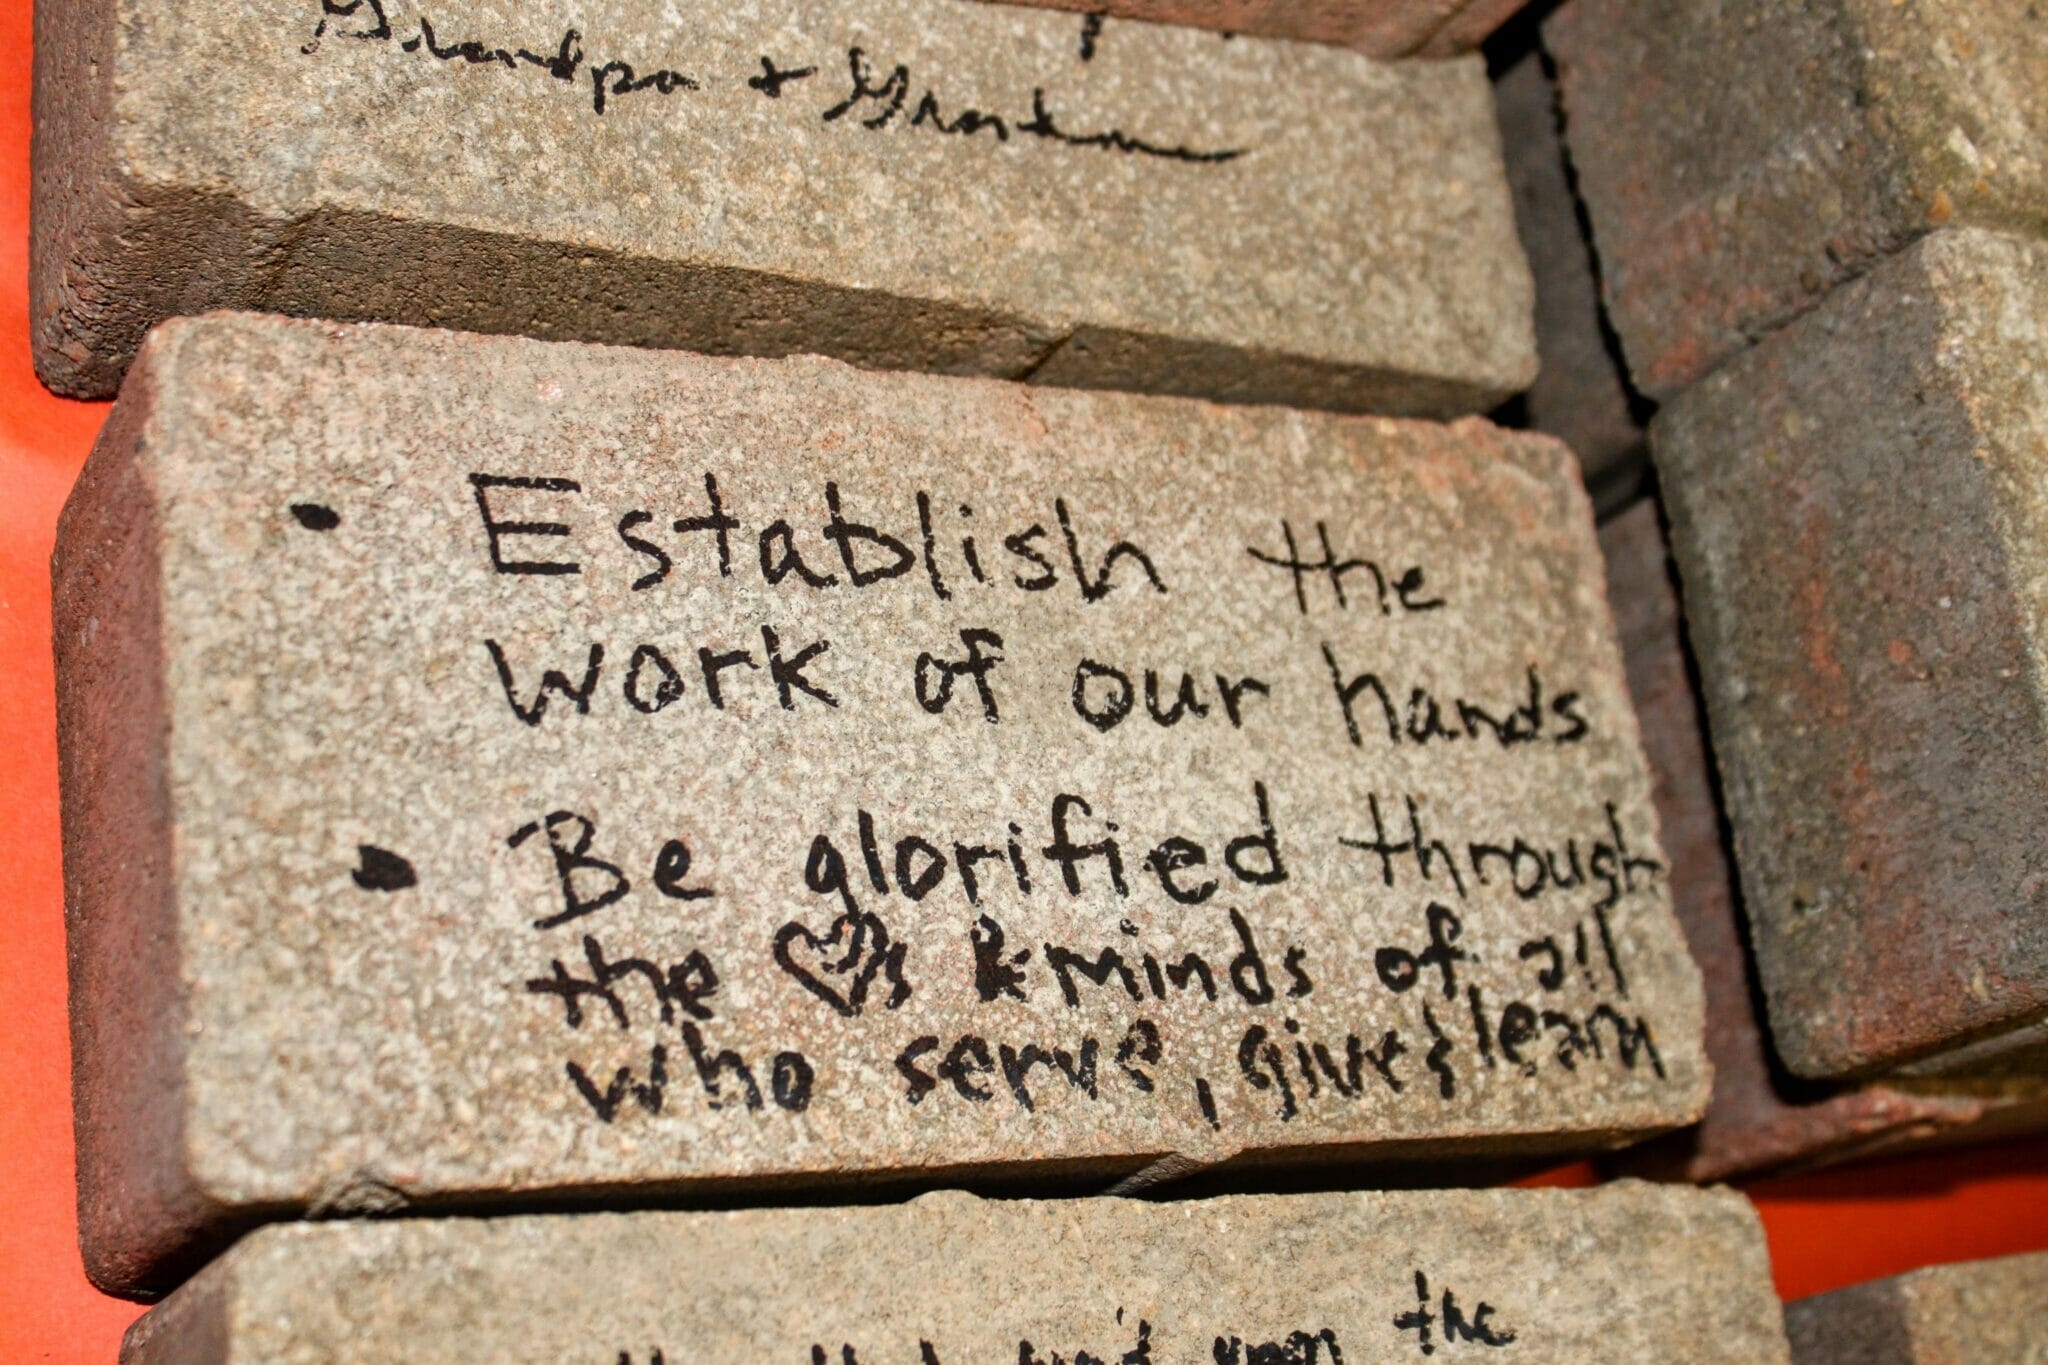 Grandpa +
• Establish the
work of our hands
• Be glorified through
the ♡s & minds of all
who serve, give & learn
upon the